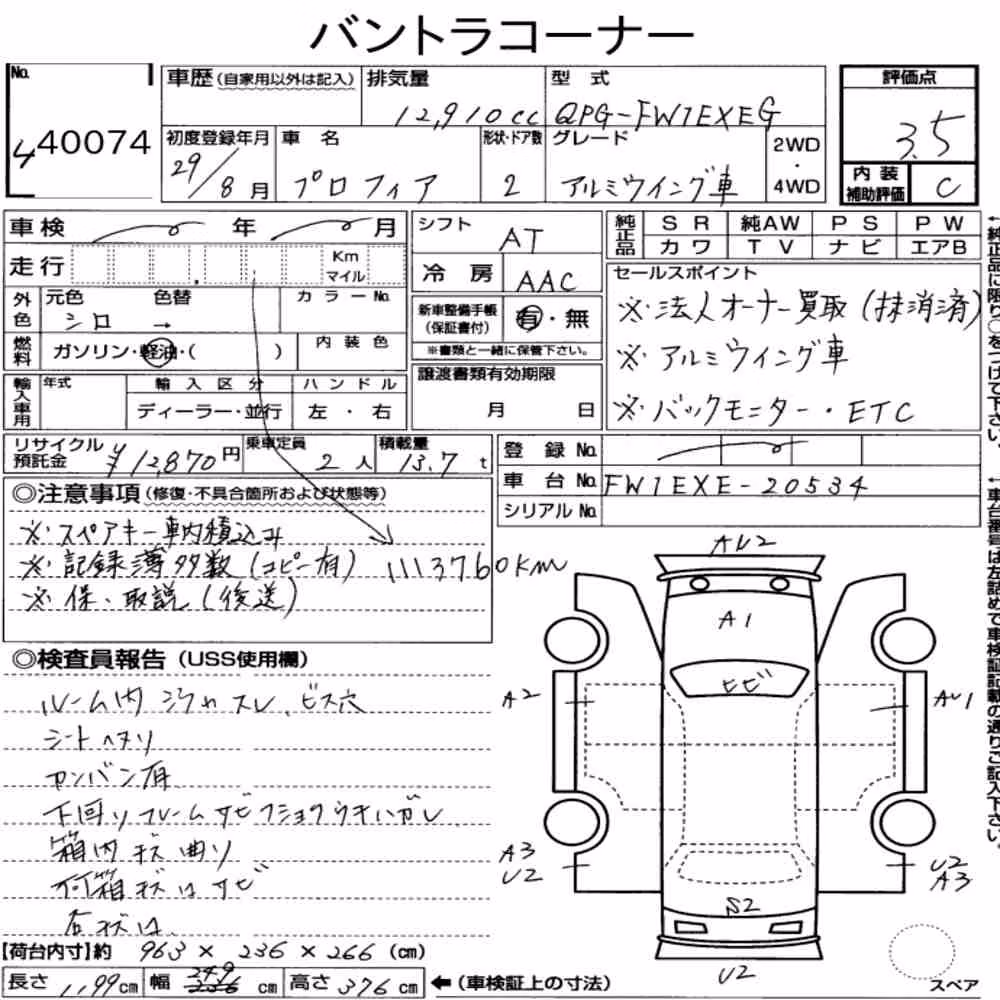 バントラコーナー
No.
440074
車歴(自家用以外は記入)
排気量
12,910cc
型式
QPG-FW1EXEG
評価点
3.5
初度登録年月
29/8月
車名
プロフィア
形状・ドア数
2
グレード
アルミウイング車
2WD
・
4WD
内装
補助評価
C
車検 年 月
走行 Km
マイル
外色
元色 色替 カラーNo.
シロ →
燃料
ガソリン・軽油・( )
内装色
輸入車用
年式
輸入区分
ディーラー・並行
ハンドル
左・右
シフト
AT
冷房
AAC
新車整備手帳
(保証書付)
有・無
※書類と一緒に保管下さい。
譲渡書類有効期限
月 日
純正品
SR 純AW PS PW
カワ TV ナビ エアB
セールスポイント
※・法人オーナー買取(抹消済)
※・アルミウイング車
※・バックモニター・ETC
←純正品に限り○をつけて下さい。
リサイクル
預託金
¥12,870円
乗車定員
2人
積載量
13.7t
登録No.
車台No.
FW1EXE-20534
シリアルNo.
←車台番号は左詰めで車検証記載の通りご記入下さい。
◎注意事項(修復・不具合箇所および状態等)
※・スペアキー車内積込み
※・記録簿多数(コピー有)
1113760km
※・保・取説(後送)
◎検査員報告(USS使用欄)
ルーム内 スレ、ビス穴
シートヘタリ
カンバン有
下回りフレームサビフショクウキハガレ
箱内 曲り
サビ
AU2
A1
ヒビ
A2
AU1
A3
U2
U2
A3
S2
U2
スペア
【荷台内寸】約 963 × 236 × 266 (cm)
長さ 1199cm 幅 249 cm 高さ 376cm ←(車検証上の寸法)